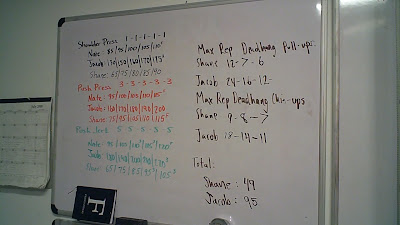 Shoulder Press 1-1-1-1-1
Nate: 85/95/100/105/110
Jacob: 130/150/160/170/175
Shane: 65/75/80/85/90
Push Press 3-3-3-3-3
Nate - 95/100/100/105
Jacob: 160/170/180/190/200
Shane: 75/95/105/110/115
Push Jerk 5 5 5 5 5
Nate
Jacob:
Shane 65/75/85/95/105
Max Rep Deadhang Pull-ups:
Shane: 12-7-6
Jacob: 24-16-12
Max Rep Deadhang Chin-ups
Shane 9-8-7
Jacob: 18-14-11
Total:
Shane: 49
Jacob: 95
F